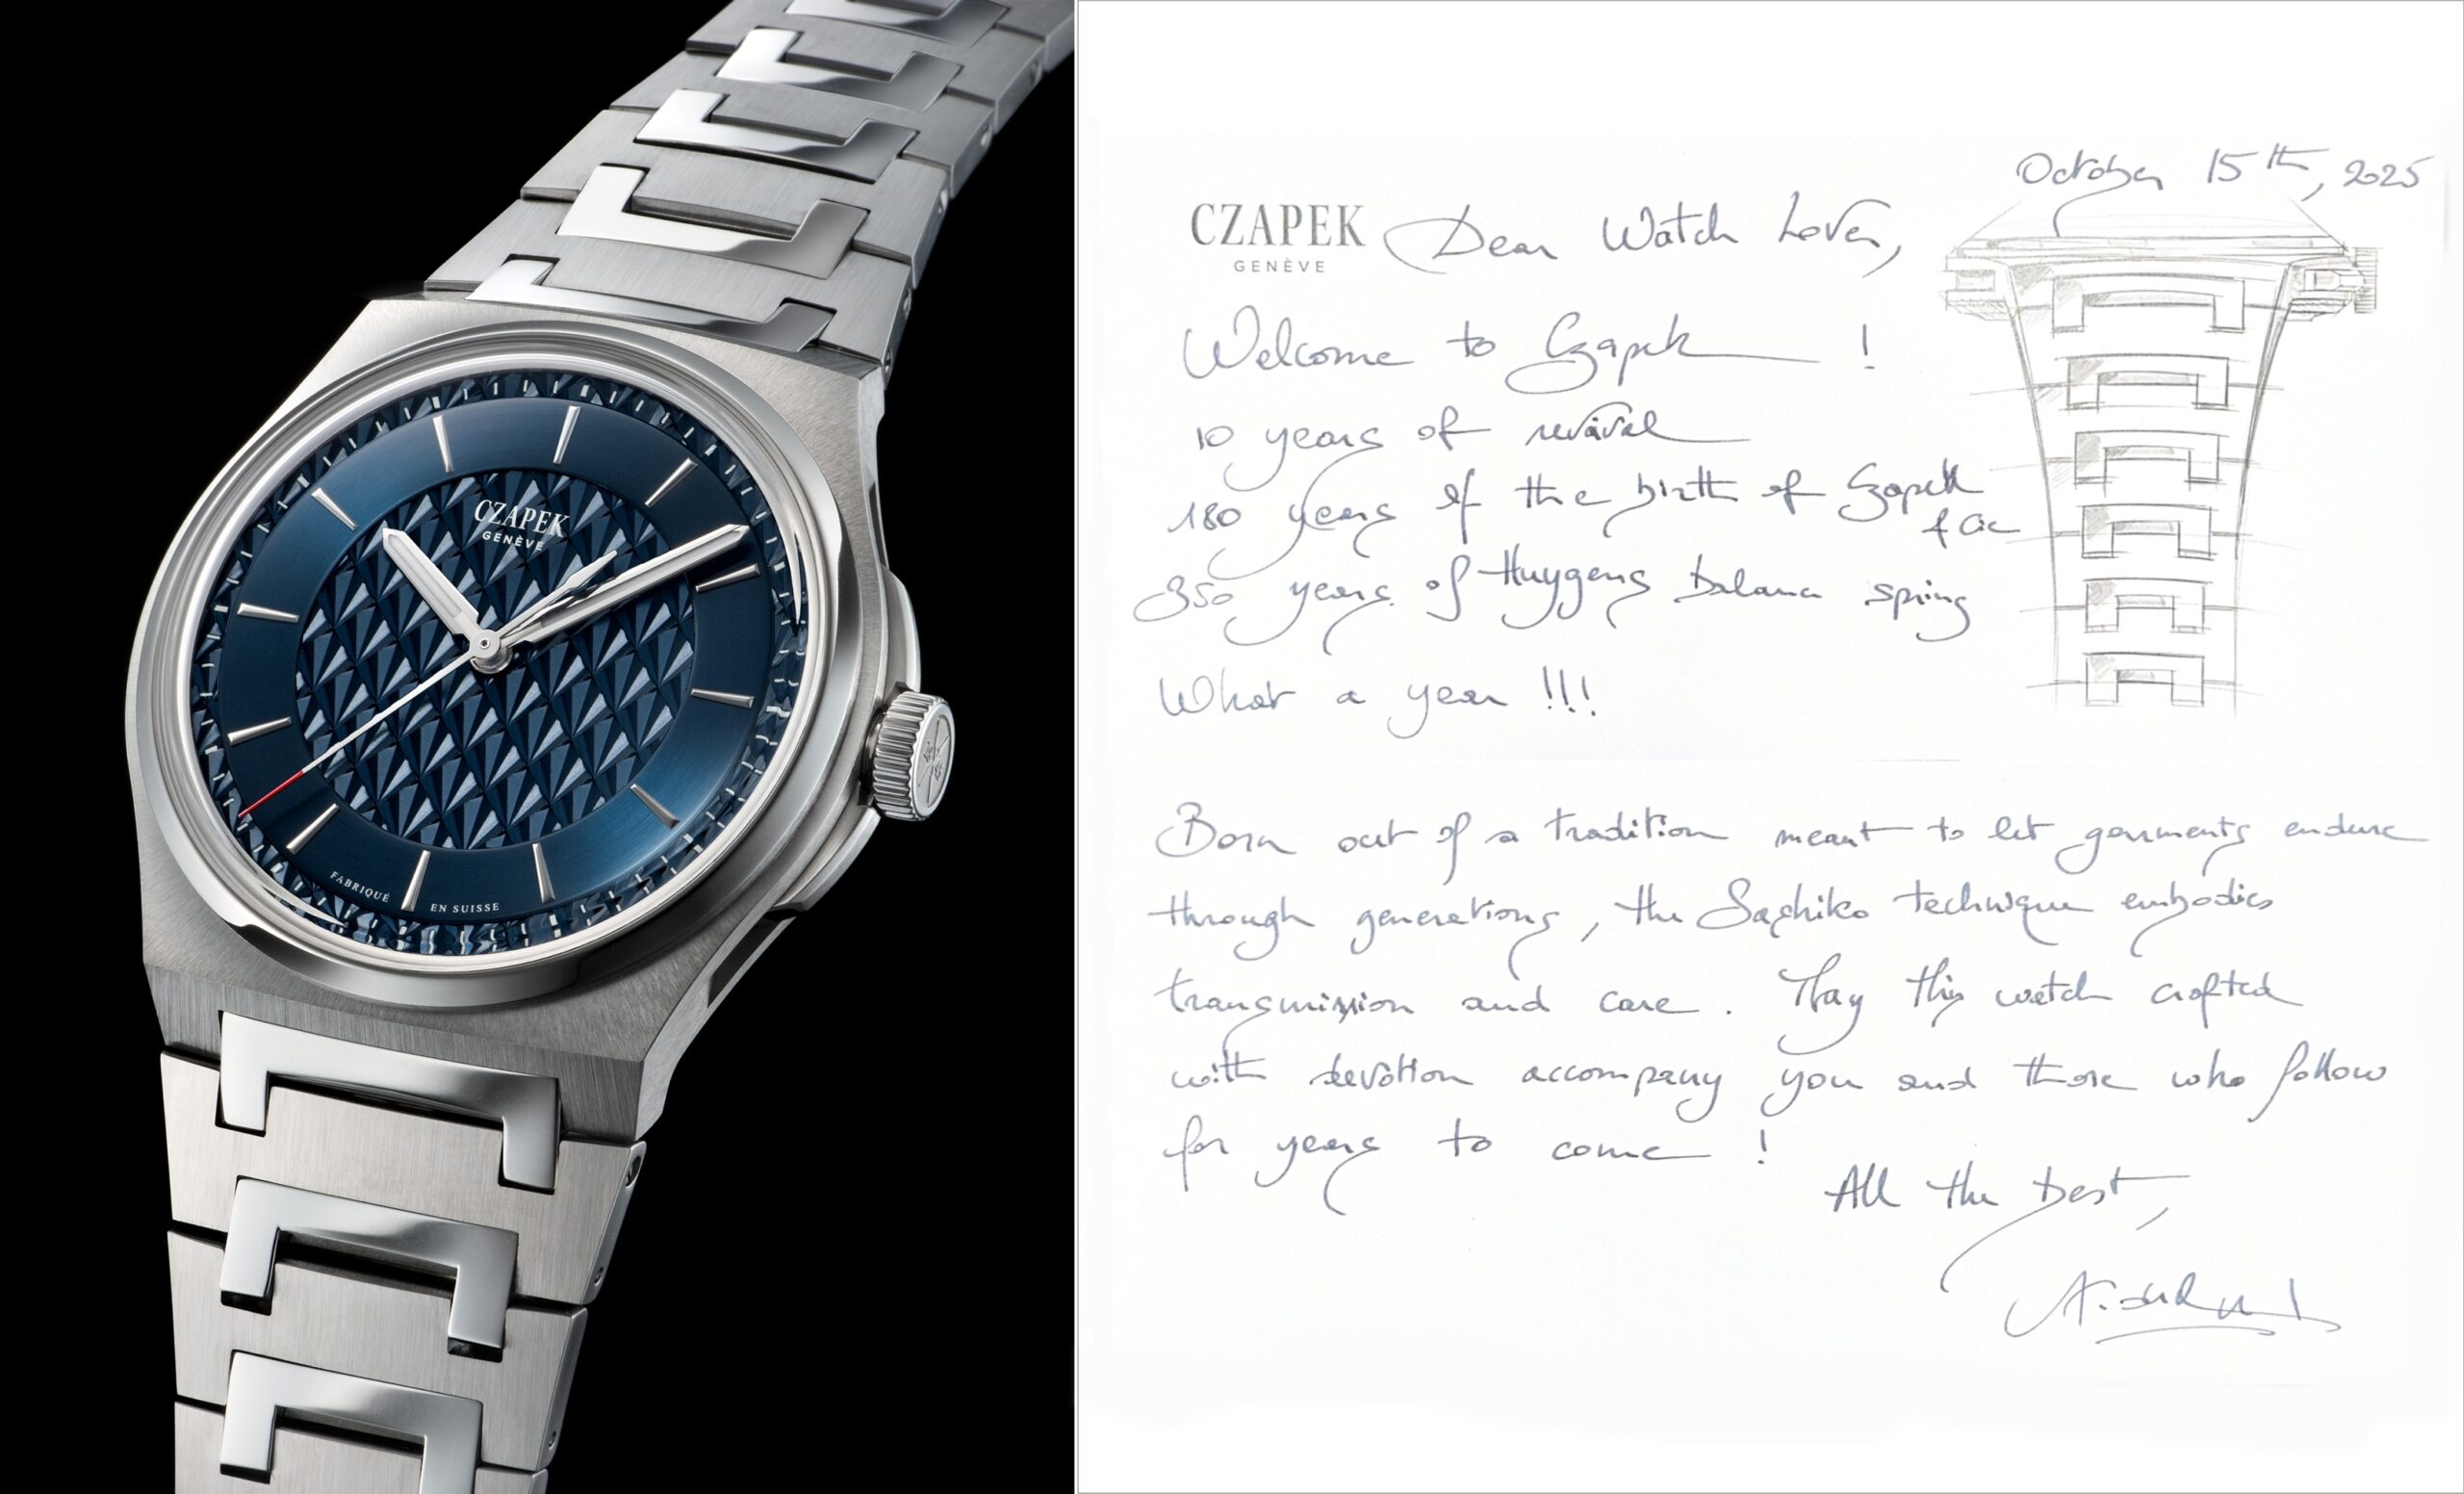 CZAPEK
GENÈVE
FABRIQUÉ EN SUISSE
October 15th, 2025
CZAPEK
GENÈVE
Dear Watch Lover,
Welcome to Czapek !
10 years of revival
180 years of the birth of Czapek
& Cie
350 years of Huygens balance spring
What a year !!!
Born out of a tradition meant to let garments endure
through generations, the Sashiko technique embodies
transmission and care. May this watch crafted
with devotion accompany you and those who follow
for years to come !
All the best,